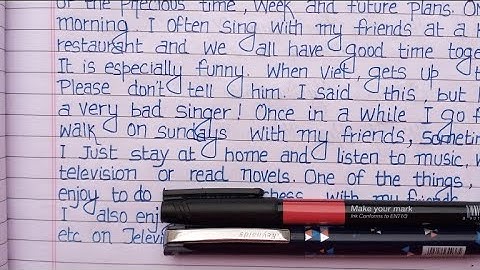 of the precious time, week and future plans. On
morning I often sing with my friends at a
restaurant and we all have good time toge
It is especially funny. When Viet, gets up t
Please don't tell him. I said this, but
a very bad singer! Once in a while I go f
walk on sundays with my friends, sometim
I Just stay at home and listen to music, w
television or read novels. One of the things,
enjoy to do chess with my friends
Make your mark
Ink Conforms to EN71/3
I also enj
etc on Televi